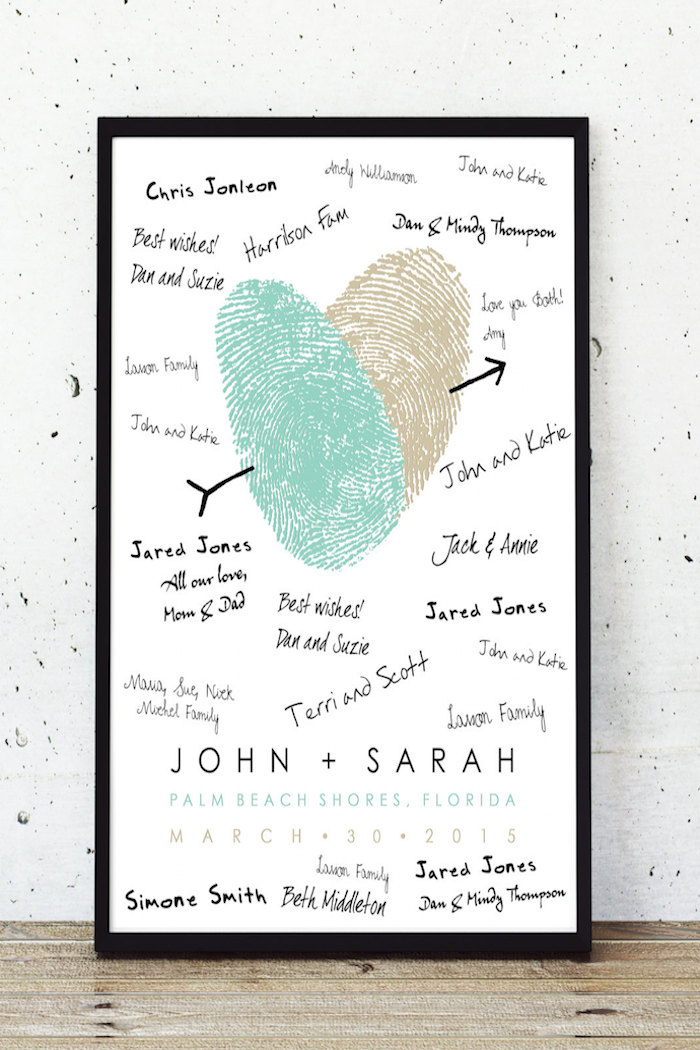 Andy Williamson
John and Katie
Chris Jonleon
Harrilson Fam
Dan & Mindy Thompson
Best wishes!
Dan and Suzie
Love you Both!
Amy
Lawson Family
John and Katie
John and Katie
Jared Jones
All our love,
Mom & Dad
Jack & Annie
Best wishes!
Dan and Suzie
Jared Jones
John and Katie
Terri and Scott
Maria, Sue, Nick
Michel Family
Lawson Family
JOHN + SARAH
PALM BEACH SHORES, FLORIDA
MARCH•30•2015
Lawson Family
Jared Jones
Simone Smith
Beth Middleton
Dan & Mindy Thompson